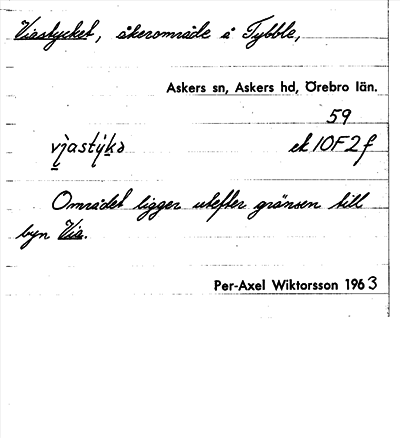 Viastycket, åkerområde å Tybble,
Askers sn, Askers hd, Örebro län.
59
vi̯astỳkə ek 10F2f
Området ligger utefter gränsen till
byn Via.
Per-Axel Wiktorsson 1963